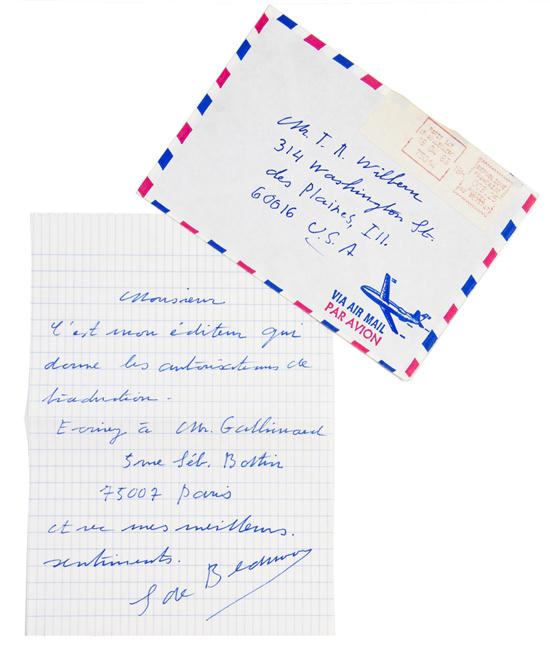 Mr. T. R. Wilbern
314 Washington St.
des Plaines, Ill.
60016
U.S.A
VIA AIR MAIL
PAR AVION
Monsieur
C'est mon éditeur qui
donne les autorisations de
traduction.
Ecrivez à Mr. Gallimard
5 rue Séb. Bottin
75007 Paris
et rec mes meilleurs.
sentiments.
S de Beauvoir